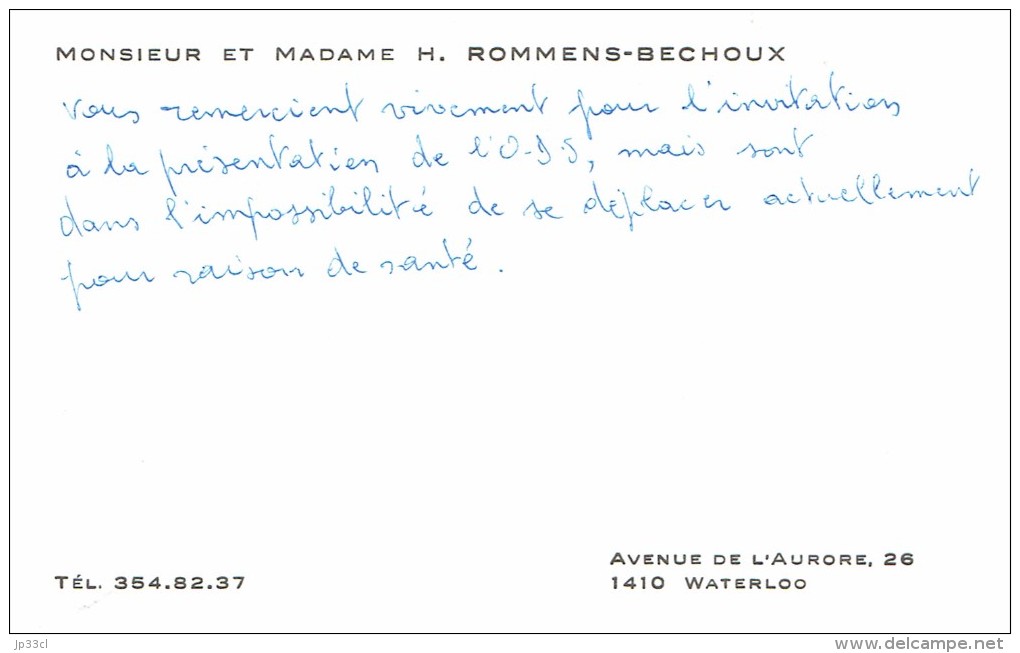 MONSIEUR ET MADAME H. ROMMENS-BECHOUX
vous remercient vivement pour l'invitation
à la présentation de l'O.D.S, mais sont
dans l'impossibilité de se déplacer actuellement
pour raison de santé.
AVENUE DE L'AURORE, 26
TÉL. 354.82.37 1410 WATERLOO
jp33cl www.delcampe.net